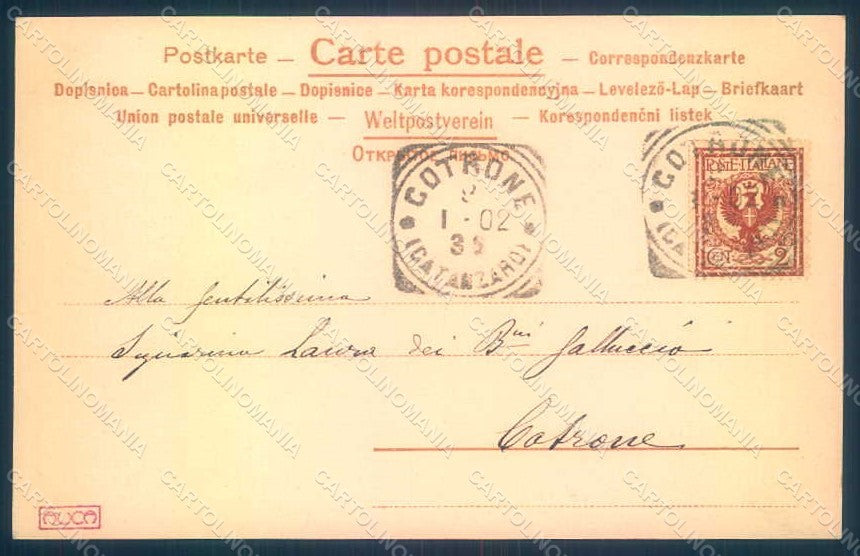 Postkarte — Carte postale — Correspondenzkarte
Dopisnica — Cartolina postale — Dopisnice — Karta korespondencyjna — Levelező-Lap — Briefkaart
Union postale universelle — Weltpostverein — Korespondenční listek
ОТКРЫТОЕ ПИСЬМО
COTRONE
1-02
(CATANZARO)
COTRONE
POSTE ITALIANE
CENT 2
Alla gentilissima
Signorina Laura dei Bni Galluccio
Cotrone
CARTOLINOMANIA